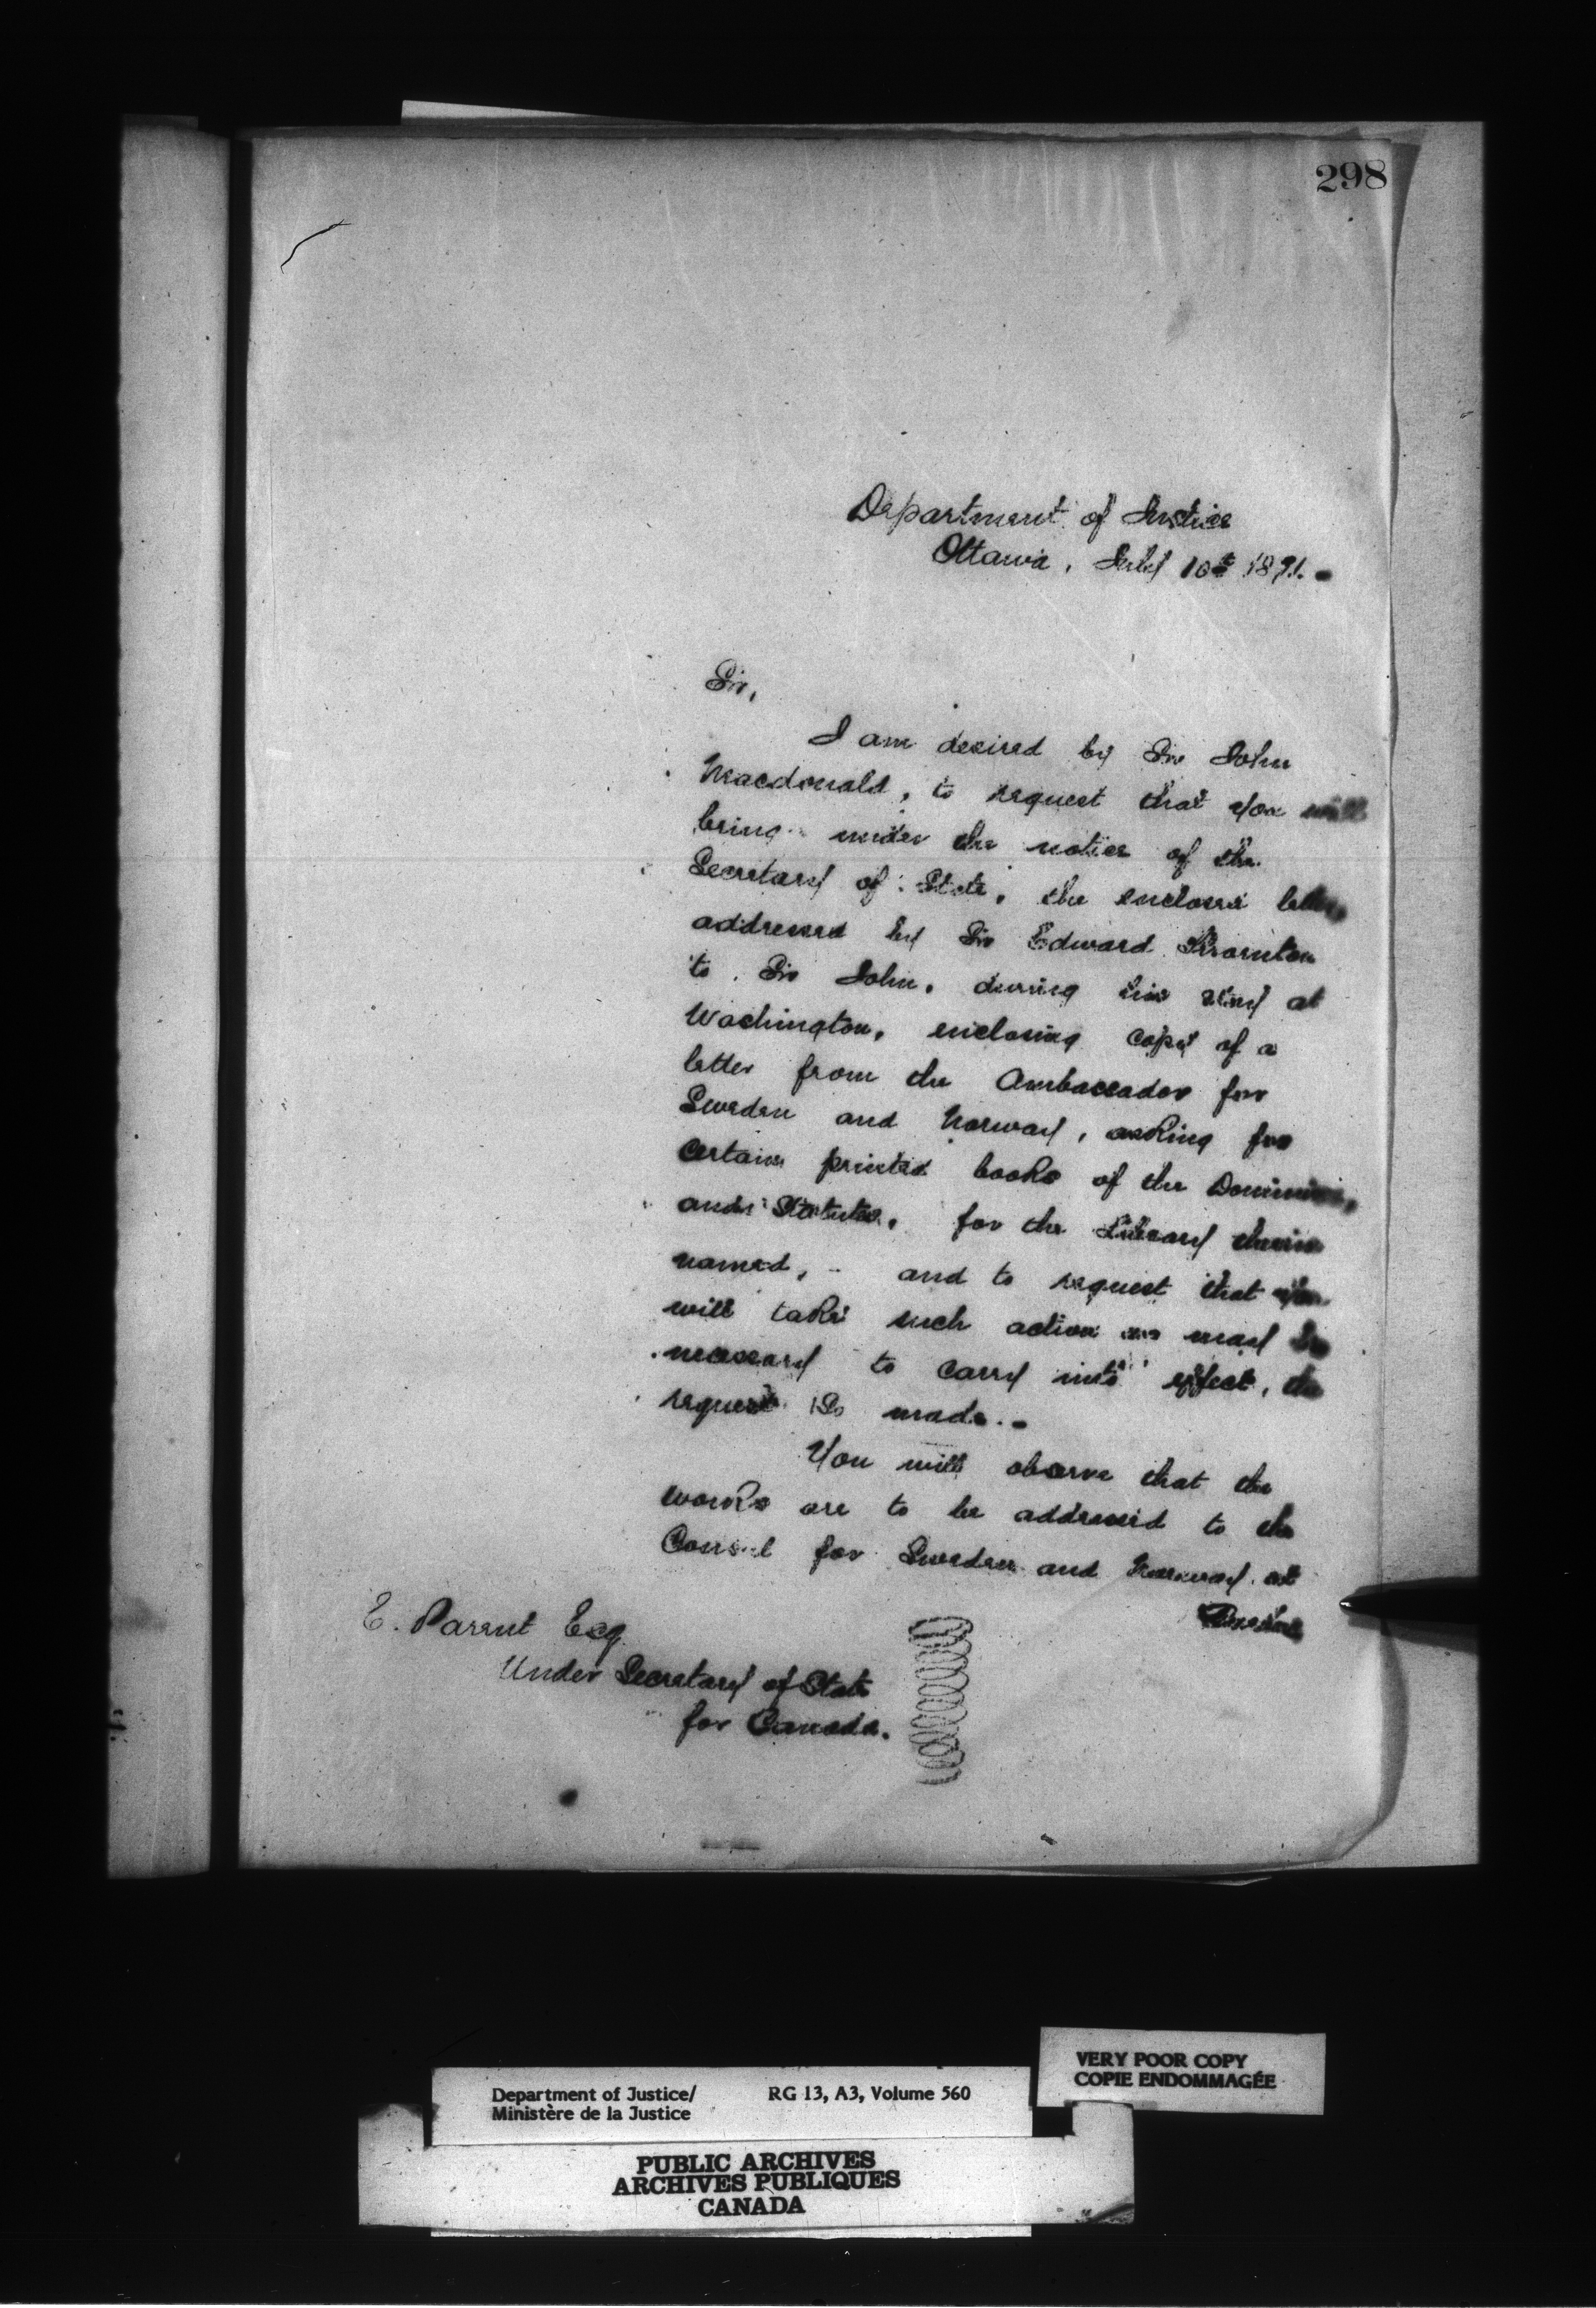 298
Department of Justice
Ottawa, July 10th 1871.
Sir,
I am desired by Sir John
Macdonald, to request that you will
bring under the notice of the
Secretary of State, the enclosed letter
addressed by Sir Edward Thornton
to Sir John, during his stay at
Washington, enclosing copy of a
letter from the Ambassador for
Sweden and Norway, asking for
certain printed books of the Dominion,
and Statutes, for the Library therein
named, - and to request that you
will take such action as may be
necessary to carry into effect, the
request so made. -
You will observe that the
works are to be addressed to the
Consul for Sweden and Norway at
E. Parent Esq
Under Secretary of State
for Canada.
Department of Justice/
Ministère de la Justice
RG 13, A3, Volume 560
VERY POOR COPY
COPIE ENDOMMAGÉE
PUBLIC ARCHIVES
ARCHIVES PUBLIQUES
CANADA